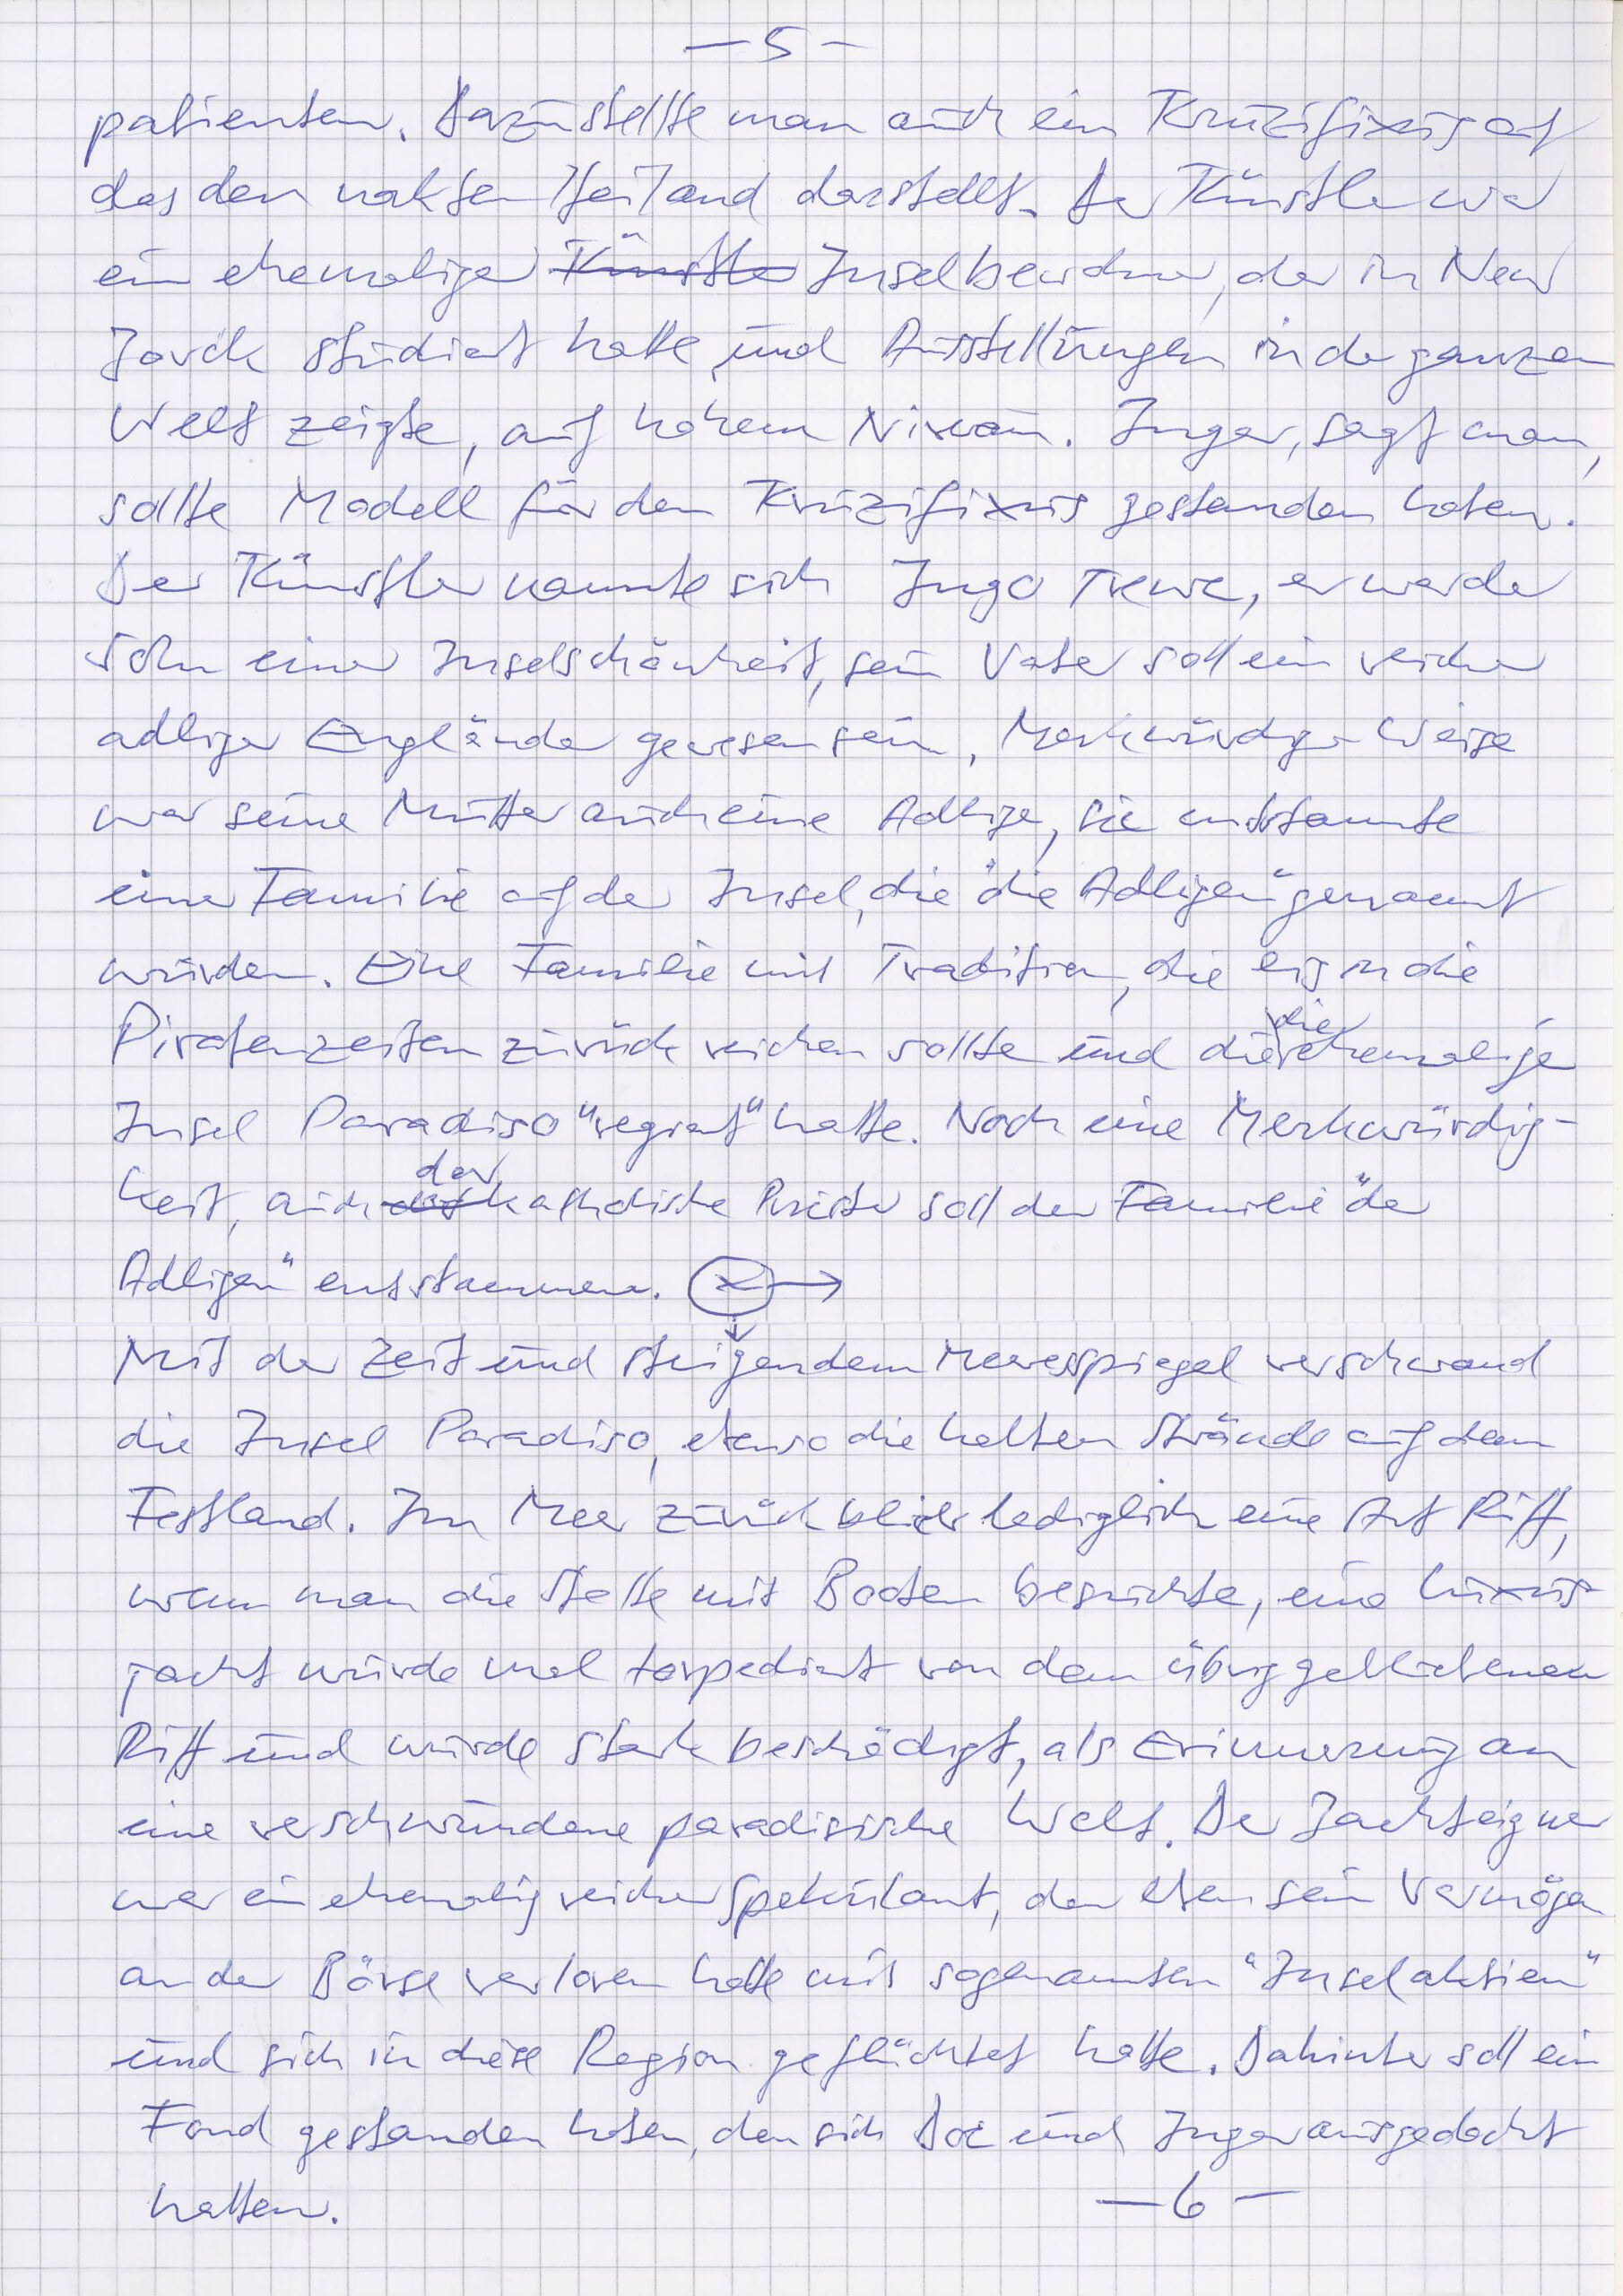 — 5 —
patienten. Dazu stellte man auch ein Kruzifixus auf
das den nakten Heiland darstellt. Der Künstler war
ein ehemaliger Künstler Inselbewohner, der in New
Jorck studiert hatte, und Ausstellungen in der ganzen
Welt zeigte, auf hohem Niveau. Inger, sagt man,
sollte Modell für den Kruzifixus gestanden haben.
Der Künstler nannte sich Ingo, er war der
Sohn einer Inselschönheit, sein Vater soll ein reicher
adliger Engländer gewesen sein, Merkwürdiger Weise
war seine Mutter auch eine Adlige, sie entstammte
einer Familie auf der Insel, die "die Adligen" genannt
wurden. Eine Familie mit Tradition, die bis in die
Piratenzeiten zurück reichen sollte und die die ehemalige
Insel Paradiso "regiert" hatte. Noch eine Merkwürdig-
keit, auch der katholische Priester soll der Familie "der
Adligen" entstammen. x →
Mit der Zeit und steigendem Meeresspiegel verschwand
die Insel Paradiso, ebenso die halben Strände auf dem
Festland. Im Meer zurück blieb lediglich eine Art Riff,
wenn man die Stelle mit Booten besuchte, eine Luxus
jacht wurde mal torpediert von dem übriggebliebenen
Riff und wurde stark beschädigt, als Erinnerung an
eine verschwundene paradisische Welt. Der Jachteigner
war ein ehemalig reicher Spekulant, der eben sein Vermögen
an der Börse verloren hatte mit sogenannten "Inselaktien"
und sich in diese Region geflüchtet hatte. Dahinter soll ein
Fond gestanden haben, den sich Doc und Inger ausgedacht
hatten. — 6 —